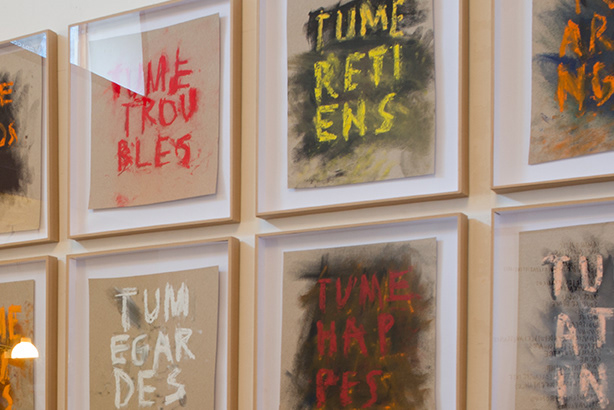 TUME
TROU
BLES
TUME
RETI
ENS
AR
NS
TUM
EGAR
DES
TUME
HAP
PES
TU
AT
IN